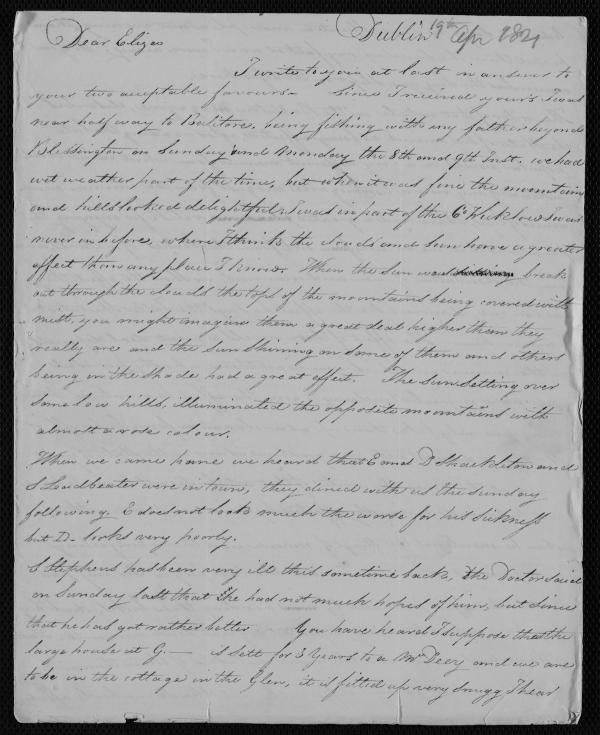 Dublin 19th Apr 1821
Dear Eliza
I write to you at last in answer to
your two acceptable favours – Since I received your's I was
near half way to Balitore, being fishing with my father beyond
Blessington on Sunday and Monday the 8th and 9th Inst. we had
wet weather part of the time, but when it was fine the mountains
and hills looked delightful. I was in part of the Co Wicklow I was
never in before, where I think the clouds and sun have a greater
effect than any place I know. When the sun was break
out through the clouds the tops of the mountains being covered with
mist, you might imagine them a great deal higher than they
really are and the sun shining on some of them and others
being in the shade had a great effect. The sun setting over
some low hills, illuminated the opposite mountains with
almost a rose colour.
When we came home we heard that E and D Shackleton and
S. Leadbeater were in town, they dined with us the sunday
following. E does not look much the worse for his sickness
but D– looks very poorly.
E Stephens has been very ill this sometime back, the Doctor said
on Sunday last that he had not much hopes of him, but since
that he has got rather better You have heard I suppose that the
large house at G:— is sett for 3 Years to a Mr Deey and we are
to be in the cottage in the Glen, it is fitted up very snugg I hear